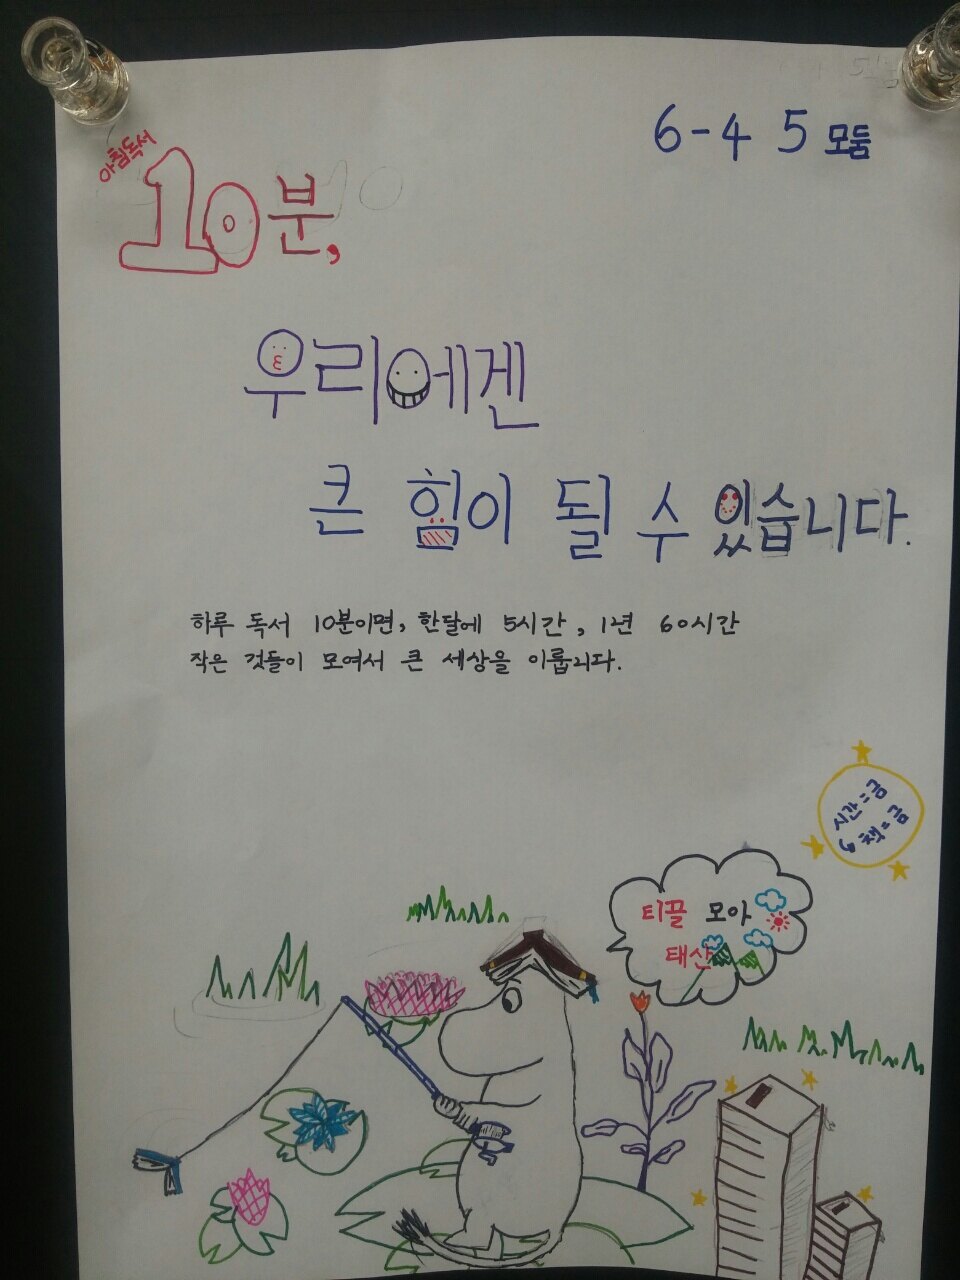 6-4 5 모둠
아침독서
10분,
우리에겐
큰 힘이 될 수 있습니다.
하루 독서 10분이면, 한달에 5시간, 1년 60시간
작은 것들이 모여서 큰 세상을 이룹니다.
시간=금
↳ 책=금
티끌 모아
태산